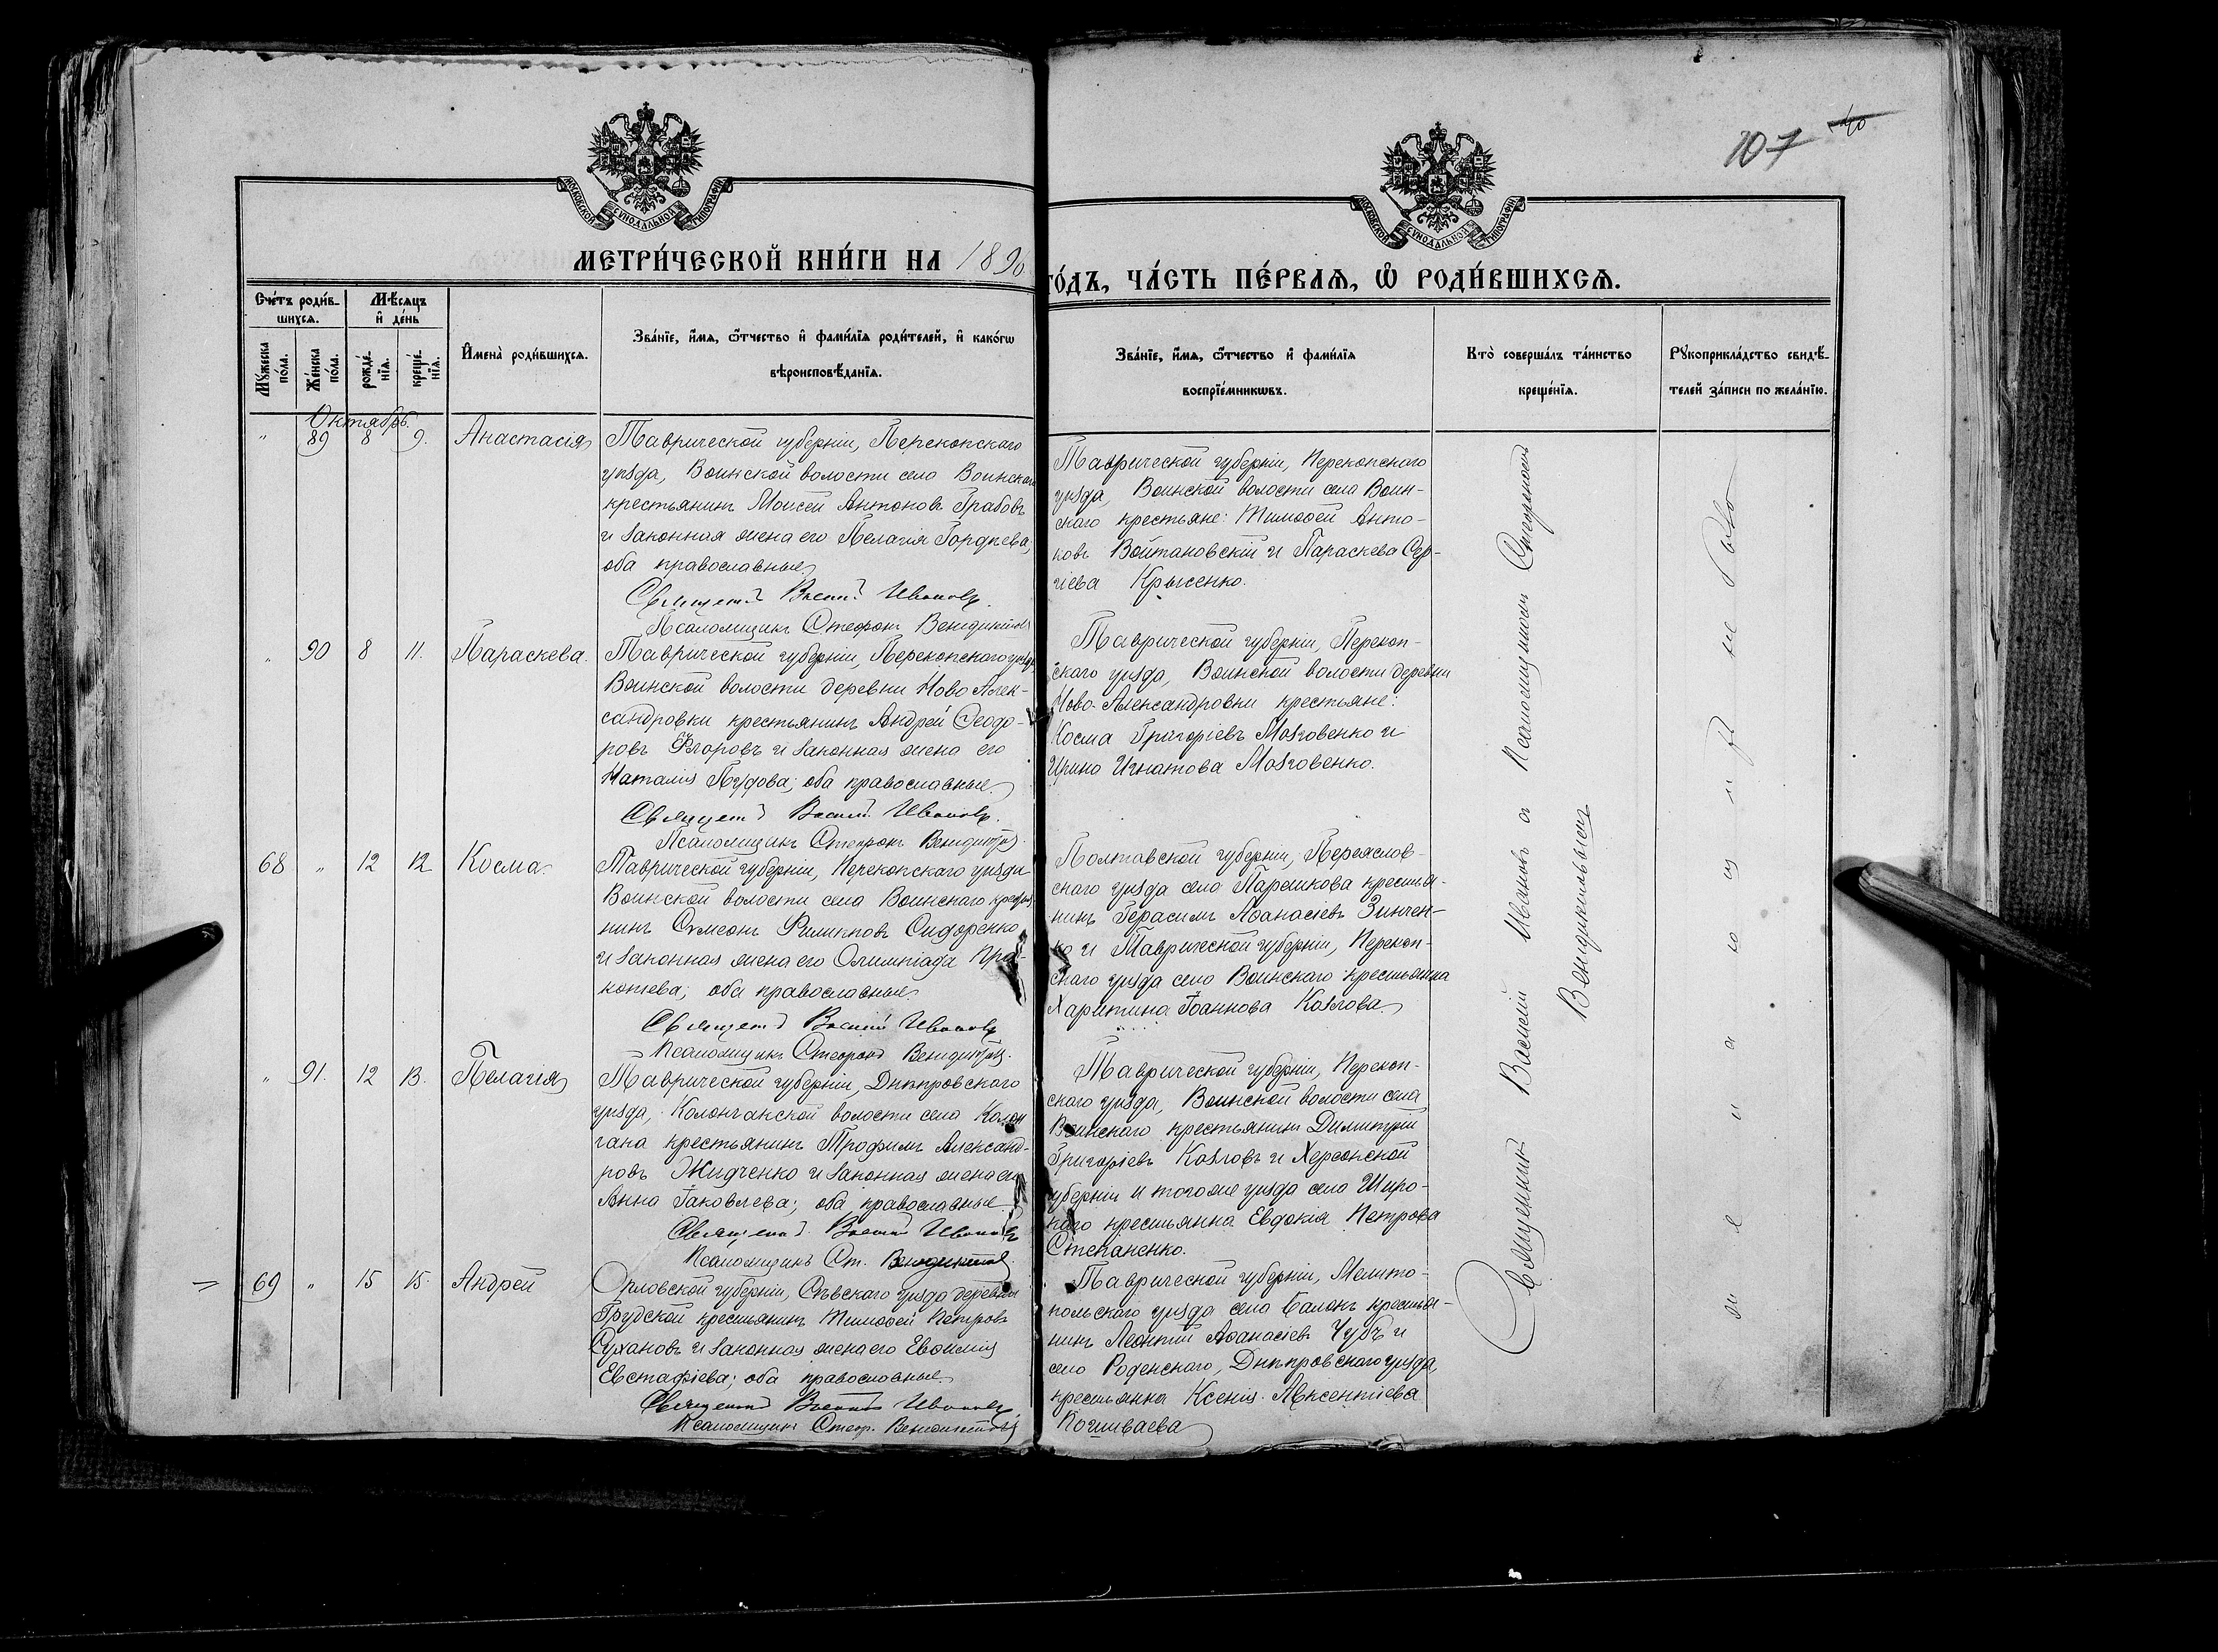 107 40
МОСКОВСКОЙ СУНОДАЛЬНОЙ ТИПОГРАФІИ
МОСКОВСКОЙ СУНОДАЛЬНОЙ ТИПОГРАФІИ
МЕТРИ́ЧЕСКОЙ КНИ́ГИ НА 1890
ГО́ДЪ, ЧА́СТЬ ПЕ́РВАЯ, Ѡ РОДИ́ВШИХСЯ.
Сче́тъ роди́в-
шихся.
Мѣ́сяцъ
и де́нь
Му́жеска
по́ла.
Же́нска
по́ла.
рожде́-
нїя.
креще́-
нїя.
Имена̀ роди́вшихся.
Зва́нїе, и́мя, ѻ́тчество и фами́лїя роди́телей, и како́гѡ
вѣроисповѣ́данїя.
Зва́нїе, и́мя, ѻ́тчество и фами́лїя
воспрїе́мникѡвъ.
Кто̀ соверша́лъ та́инство
креще́нїя.
Рꙋкоприкла́дство свидѣ́-
телей за́писи по жела́нїю.
Октябрь.
" 89 8 9. Анастасія
Таврической губерніи, Перекопскаго
уѣзда, Воинской волости село Воинскаго
крестьянинъ Моисей Антоновъ Грабовъ
и законная жена его Пелагія Гордѣева,
оба православные
Священ. Васил. Ивановъ.
Псаломщикъ Стефанъ Венидиктовъ
Таврической губерніи, Перекопскаго
уѣзда, Воинской волости села Воин-
скаго крестьяне: Тимоѳей Анто-
новъ Войтановскій и Параскева Сер-
гіева Крысенко.
" 90 8 11. Параскева.
Таврической губерніи, Перекопскаго уѣзда
Воинской волости деревни Ново Алек-
сандровки крестьянинъ Андрей Ѳеодо-
ровъ Егоровъ и законная жена его
Наталія Пудова; оба православные.
Священ. Васил. Ивановъ.
Псаломщикъ Стефанъ Венидиктовъ.
Таврической губерніи, Перекоп-
скаго уѣзда, Воинской волости деревни
Ново-Александровки крестьяне:
Косма Григоріевъ Мозговенко и
Ирина Игнатова Мозговенко.
68 " 12 12 Косма.
Таврической губерніи, Перекопскаго уѣзда
Воинской волости села Воинскаго крестья
нинъ Симеонъ Филипповъ Сидоренко
и законная жена его Олимпіада Про-
копева; оба православные.
Священ. Васил. Ивановъ
Псаломщикъ Стефанъ Венидиктовъ.
Полтавской губерніи, Переяслов-
скаго уѣзда село Парешкова крестья-
нинъ Герасимъ Аѳанасіевъ Зинчен-
ко и Таврической губерніи, Перекоп-
скаго уѣзда село Воинскаго крестьянка
Харитина Іоаннова Козлова.
" 91. 12 13. Пелагія
Таврической губерніи, Днѣпровскаго
уѣзда, Колончакской волости села Колон
чака крестьянинъ Трофимъ Александ-
ровъ Жидченко и законная жена его
Анна Іаковлева; оба православные.
Священ. Васил. Ивановъ
Псаломщикъ Ст. Венидиктовъ.
Таврической губерніи, Перекоп-
скаго уѣзда, Воинской волости села
Воинскаго крестьянинъ Димитрій
Григоріевъ Козловъ и Херсонской
губерніи и того же уѣзда села Широ-
каго крестьянка Евдокія Петрова
Степаненко.
69 " 15 15. Андрей
Орловской губерніи, Сѣвскаго уѣзда деревни
Грудской крестьянинъ Тимоѳей Петровъ
Сухановъ и законная жена его Евѳимія
Евстафіева; оба православные.
Священ. Васил. Ивановъ.
Псаломщикъ Стеф. Венидиктовъ
Таврической губерніи, Мелито-
польскаго уѣзда села Балокъ крестья-
нинъ Леонтій Аѳанасіевъ Чубъ и
село Роденскаго, Днѣпровскаго уѣзда,
крестьянка Ксенія Авксентіева
Кошиваева
Священникъ Василій Ивановъ съ Псаломщикомъ Стефаномъ
Венидиктовымъ